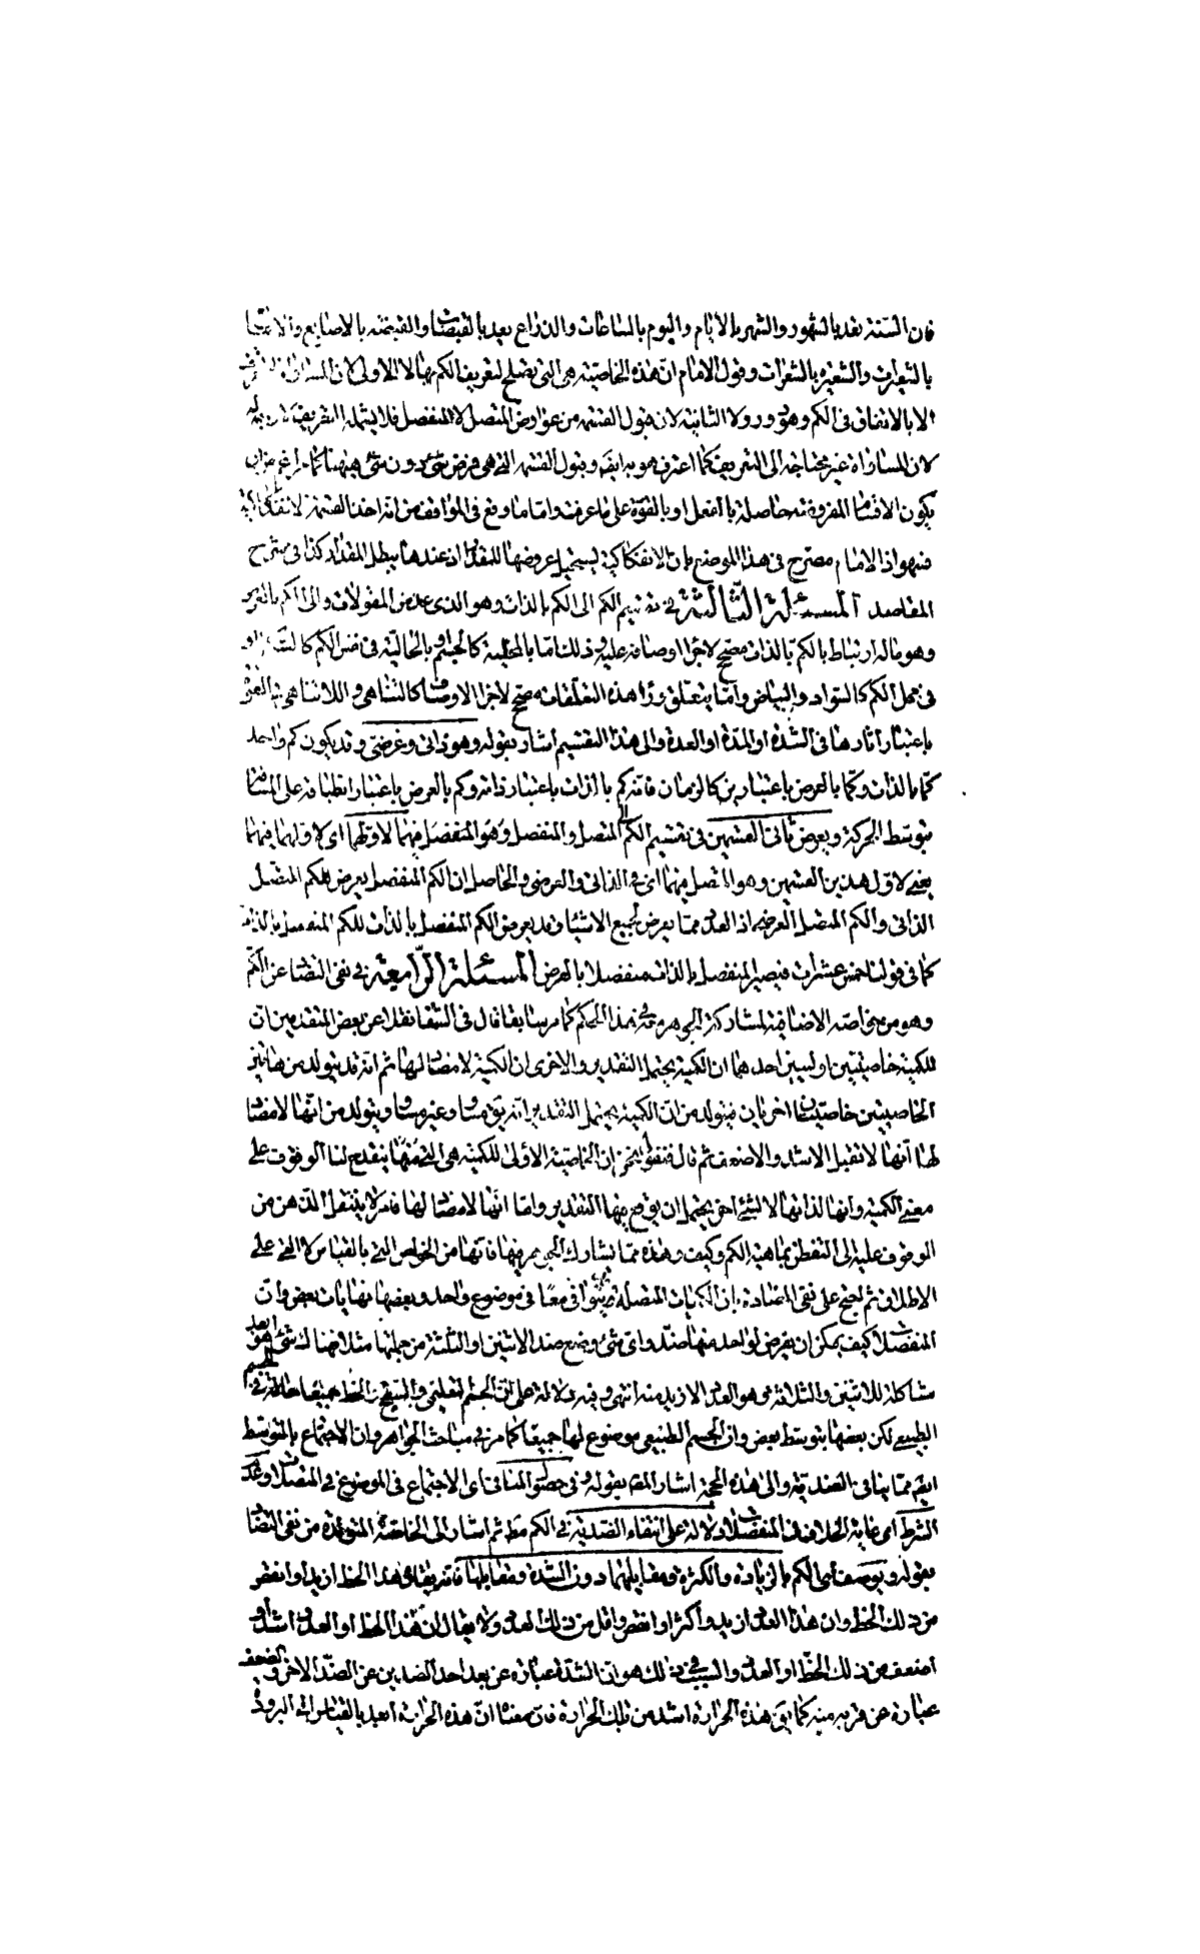 فان السنة تقدر بالشهور والشهر بالايام واليوم بالساعات والذراع يعد بالقبضات والقبضة بالاصابع والاصابع
بالشعيرات والشعيرة بالشعرات وقول الامام ان هذه الخاصية هى التى تصلح لتعريف الكم بها لا الاولى لان المساواة لا تعرف
الا بالاتفاق فى الكم وهو دور ولا الثانية لان قبول القسمة من عوارض المتصل لا المنفصل فلا يشمله التعريف
لان المساواة غير محتاجة الى التعريف كما اعترف هو به ايضا وقبول القسمة التى هى فرض شئ دون شئ ههنا
بكون الاقسام المفروضة حاصلة بالفعل او بالقوة على ما عرفت واما ما وقع فى المواقف من انه اخذ القسمة الانفكاكية
فسهو اذ الامام مصرح فى هذا الموضع بان الانفكاكية يستحيل عروضها للمقدار اذ عندها يبطل المقدار كذا فى شرح
المقاصد المسئلة الثالثة فى تقسيم الكم الى الكم بالذات وهو الذى عد من المقولات والى الكم بالعرض
وهو ما له ارتباط بالكم بالذات مصحح لاجراء اوصافه عليه وذلك اما بالمحلية كالجسم او بالحالية فى نفس الكم كالشكل او
فى محل الكم كالسواد والبياض واما بتعلق وراء هذه التعلقات مصحح لاجراء الاوصاف كالتناهى واللاتناهى
باعتبار اثارها فى الشدة او المدة او العدة والى هذا التقسيم اشار بقوله وهو ذاتى وعرضى وقد يكون كم واحد
كما بالذات وكما بالعرض باعتبارين كالزمان فانه كم بالذات باعتبار ذاته وكم بالعرض باعتبار انطباقه على المسافة
بتوسط الحركة ويعرض ثانى القسمين فى تقسيم الكم الى المتصل والمنفصل وهو المنفصل فيهما لاولهما اى لاولهما فيهما
يعنى لاول هذين القسمين وهو المتصل فيهما اى فى الذاتى والعرضى والحاصل ان الكم المنفصل يعرض للكم المتصل
الذاتى والكم المتصل العرضى اذ العدد مما يعرض لجميع الاشياء وقد يعرض الكم المنفصل بالذات للكم المنفصل بالذات
كما فى قولنا خمس عشرات فيصير المنفصل بالذات منفصلا بالعرض المسئلة الرابعة فى نفى التضاد عن الكم
وهو من خواصه الاضافية لمشاركة الجوهر معه فى هذا الحكم كما مر سابقا قال فى الشفا نقلا عن بعض المتقدمين ان
للكمية خاصيتين اوليين احدهما ان الكمية يحتمل التقدير والاخرى ان الكمية لا مضاد لها ثم انه قد يتولد من هاتين
الخاصيتين خاصيتان اخريان فيتولد من ان الكمية يحتمل التقدير انه يق مساو وغير مساو ويتولد من انها لا مضاد
لها انها لا تقبل الاشد والاضعف ثم قال فنقول نحن ان الخاصية الاولى للكمية هى التى منها ينقدح لنا الوقوف على
معنى الكمية وانها لذاتها لا لشئ اخر يحتمل ان يوقع فيها التقدير واما انها لا مضاد لها فامر لا ينتقل الذهن من
الوقوف عليه الى التفطن بماهية الكم وكيف وهذه مما يشارك الجوهر فيها فانها من الخواص التى بالقياس لا التى على
الاطلاق ثم احتج على نفى المضادة بان الكميات المتصلة قد توافى معا فى موضوع واحد وبعضها نهايات بعض وان
المنفصلات كيف يمكن ان يفرض لواحد منها ضد واى شئ وضع ضد الاثنين او الثلثة من جملتها مثلا فهناك شئ هو ابعد
مشاكلة للاثنين والثلاثة وهو العدد الازيد منه انتهى وفيه دلالة على ان الجسم التعليمى والسطح والخط جميعا حالة فى الجسم
الطبيعى لكن بعضها بتوسط بعض وان الجسم الطبيعى موضوع لها جميعا كما مر فى مباحث الجواهر وان الاجتماع بالتوسط
ايضا مما ينافى الضدية والى هذه الحجة اشار المص بقوله وفى حصول المنافى اى الاجتماع فى الموضوع فى المتصلات وعدم
الشرط اى غاية الخلاف فى المنفصلات دلالة على انتفاء الضدية فى الكم مط ثم اشار الى الخاصة المتولدة من نفى التضاد
بقوله ويوصف اى الكم بالزيادة والكثرة ومقابلهما دون الشدة ومقابلها فانه يقال هذا الخط ازيد او انقص
من ذلك الخط وان هذا العدد ازيد واكثر او انقص واقل من ذلك العدد ولا يقال ان هذا الخط او العدد اشد او
اضعف من ذلك الخط او العدد والسبب فى ذلك هو ان الشدة عبارة عن بعد احد الضدين عن الضد الاخر والضعف
عبارة عن قربه منه كما يق هذه الحرارة اشد من تلك الحرارة فان معناه ان هذه الحرارة ابعد بالقياس الى البرودة